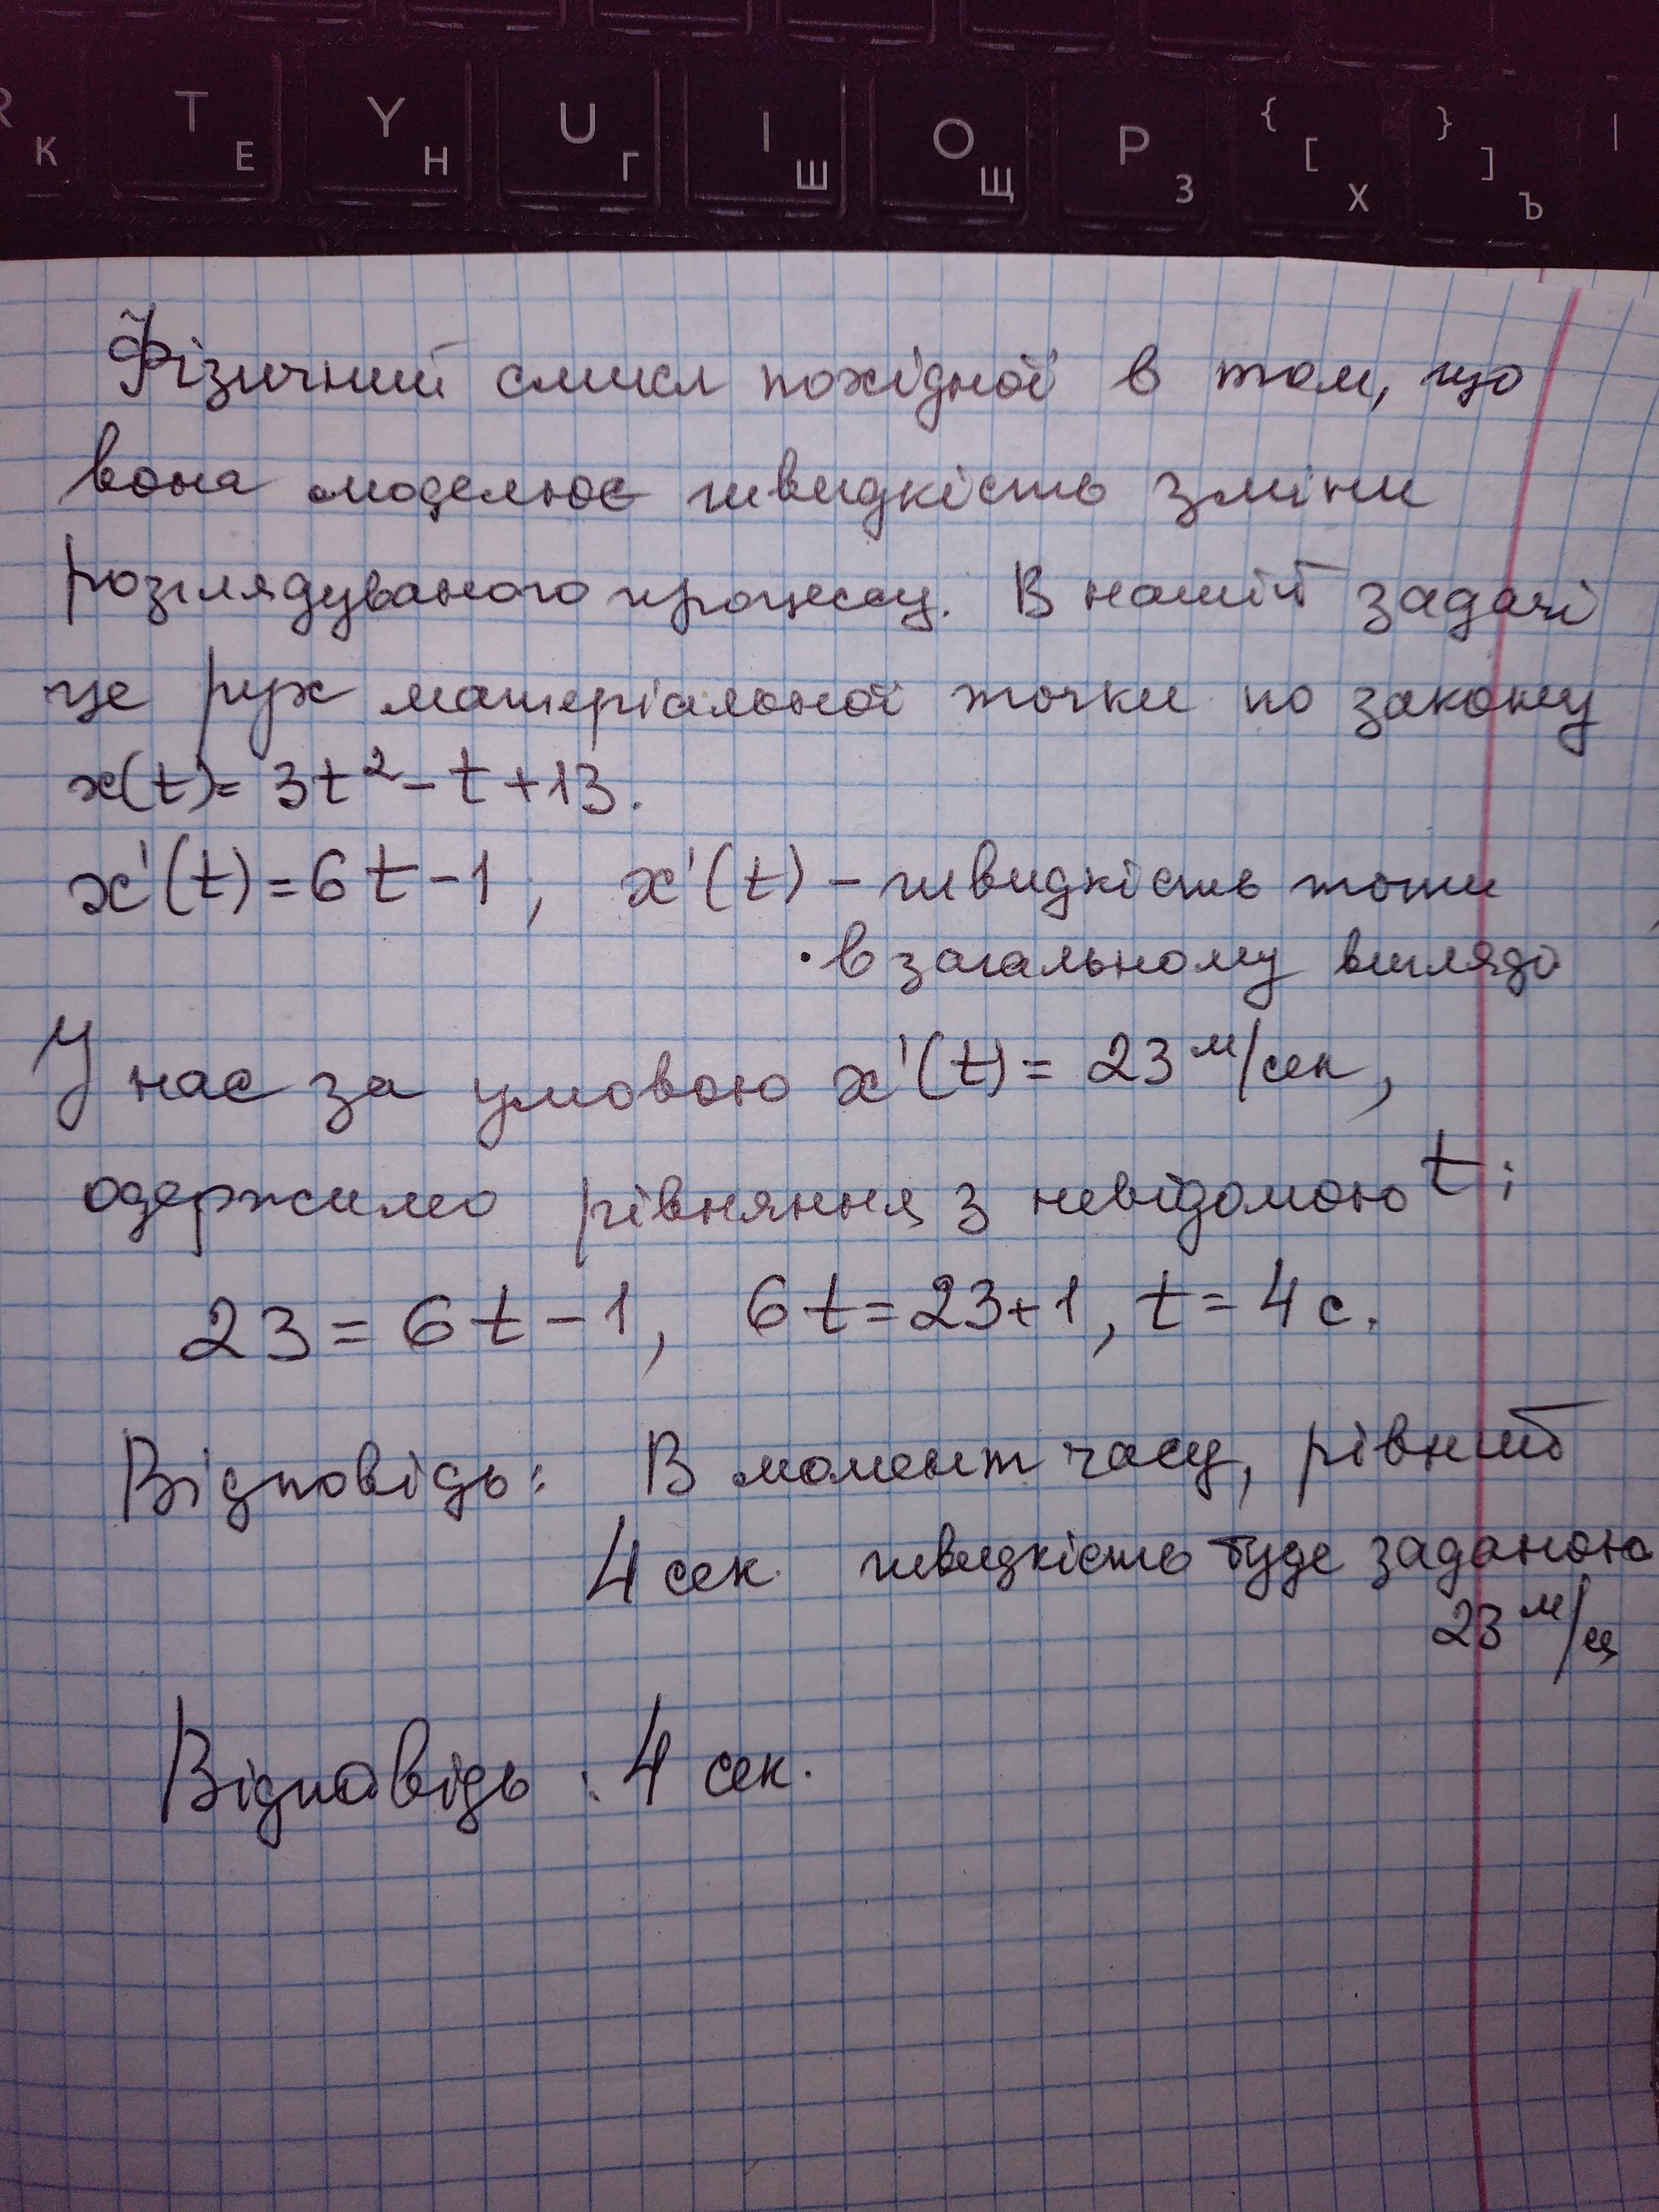 R К T Е Y Н U Г I Ш O Щ P З { [ Х } ] Ъ |
Фізичний смисл похідної в том, що
вона моделює швидкість зміни
розглядуваного процессу. В нашій задачі
це рух матеріальної точки по закону
x(t)= 3t²-t+13.
x'(t)=6t-1, x'(t) - швидкість точки
в загальному вигляді
У нас за умовою x'(t)= 23 м/сек,
одержимо рівняння з невідомою t;
23=6t-1, 6t=23+1, t=4c.
Відповідь: В момент часу, рівний
4 сек. швидкість буде заданою
23 м/
Відповідь: 4 сек.